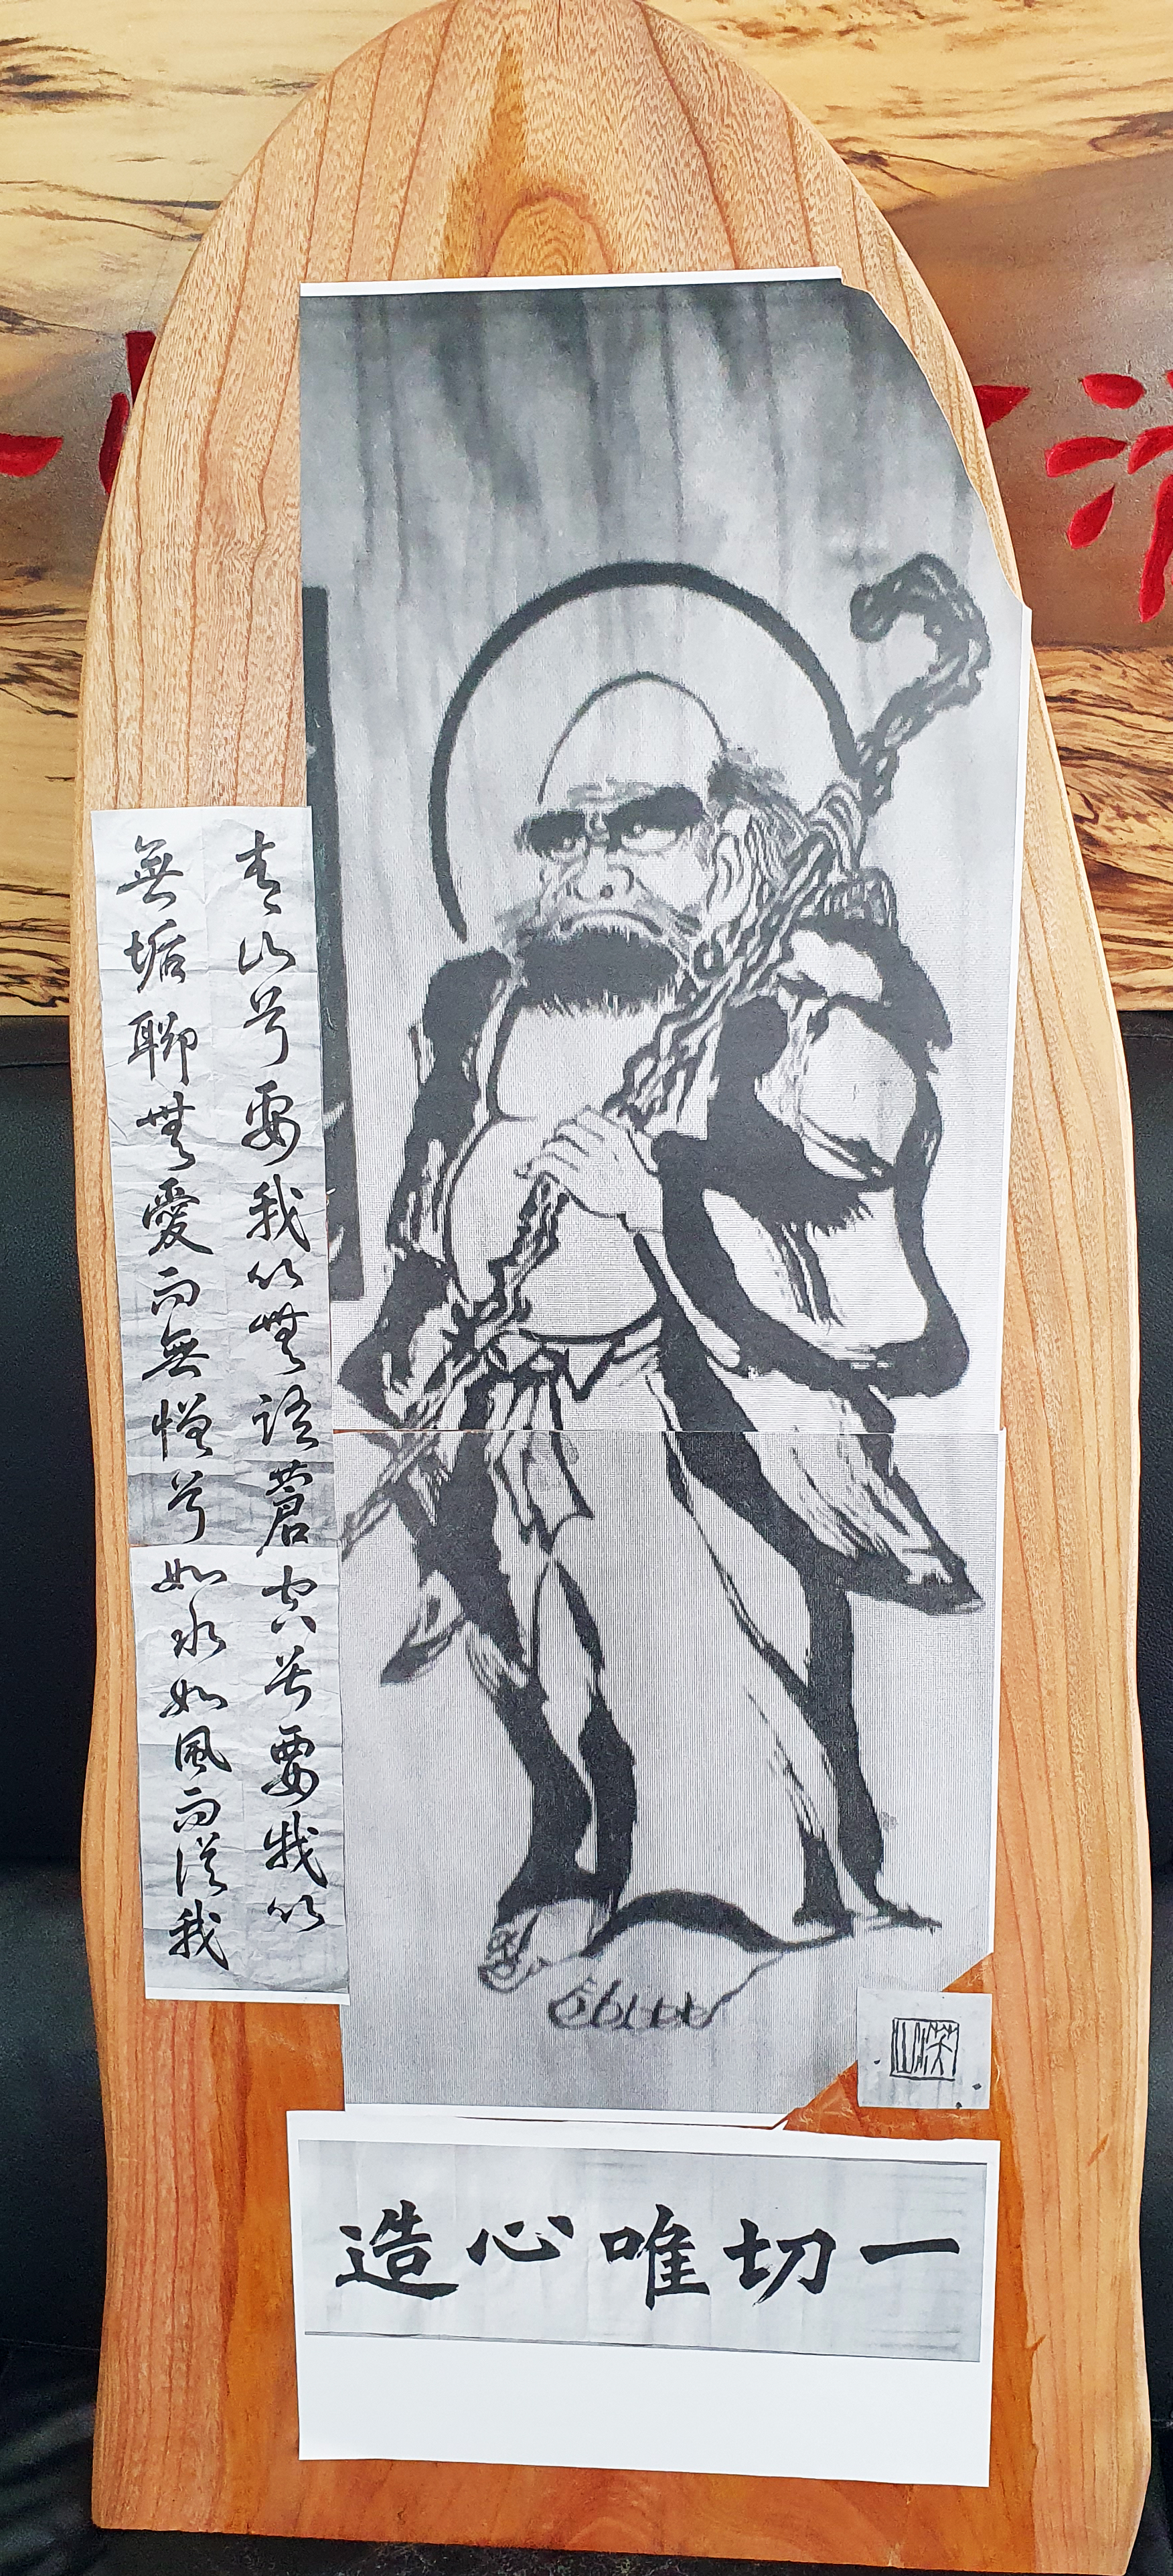 青山兮要我以無語蒼空兮要我以
無垢聊無愛而無憎兮如水如風而從我
一切唯心造